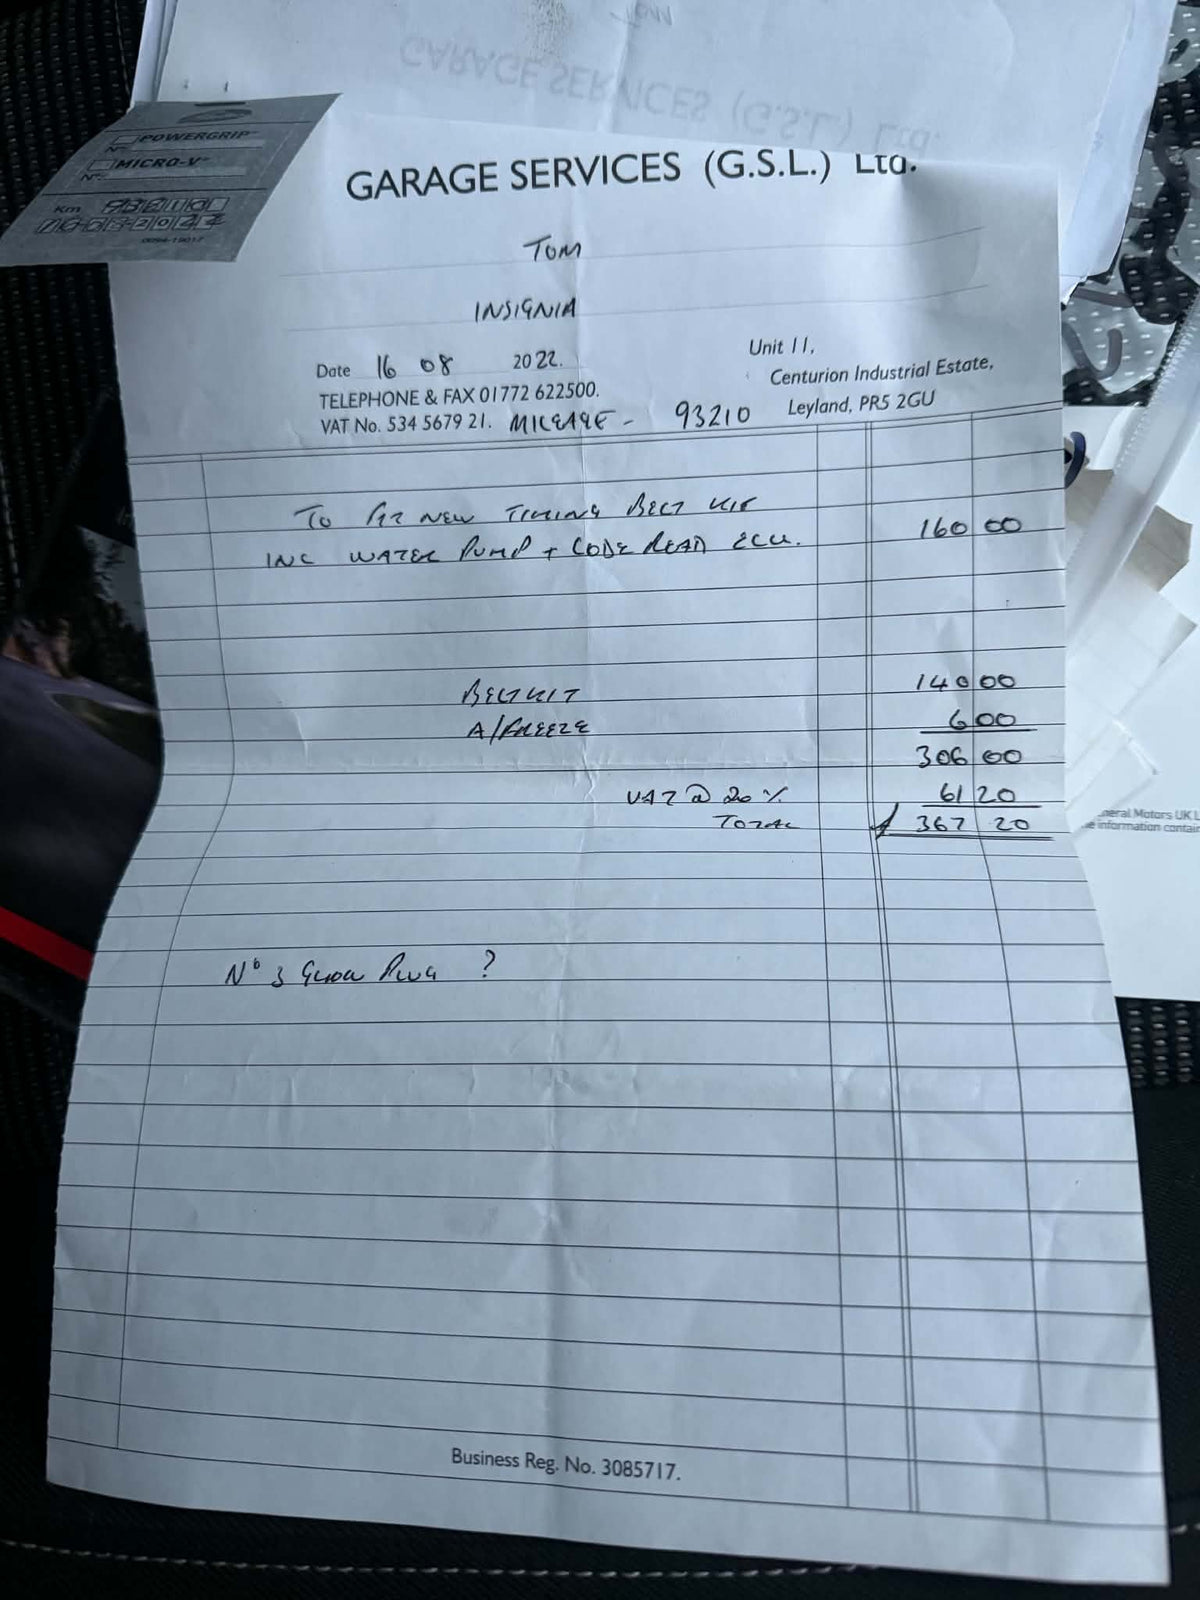 Tom
GARAGE SERVICES (G.S.L.) Ltd.
POWERGRIP
No.
MICRO-V
No.
Km 93210
16 08 2022
0094-19017
GARAGE SERVICES (G.S.L.) Ltd.
TOM
INSIGNIA
Date 16 08 2022.
TELEPHONE & FAX 01772 622500.
VAT No. 534 5679 21. MILEAGE - 93210
Unit 11,
Centurion Industrial Estate,
Leyland, PR5 2GU
TO FIT NEW TIMING BELT KIT
INC WATER PUMP + CODE READ ECU. 160 00
BELT KIT 140 00
A/FREEZE 6 00
306 00
VAT @ 20 % 61 20
TOTAL £ 367 20
No 3 GLOW PLUG ?
neral Motors UK L
e information contai
Business Reg. No. 3085717.